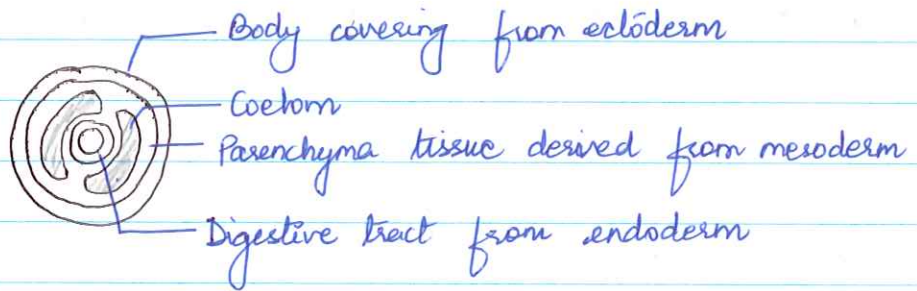 Body covering from ectoderm
Coelom
Parenchyma tissue derived from mesoderm
Digestive tract from endoderm